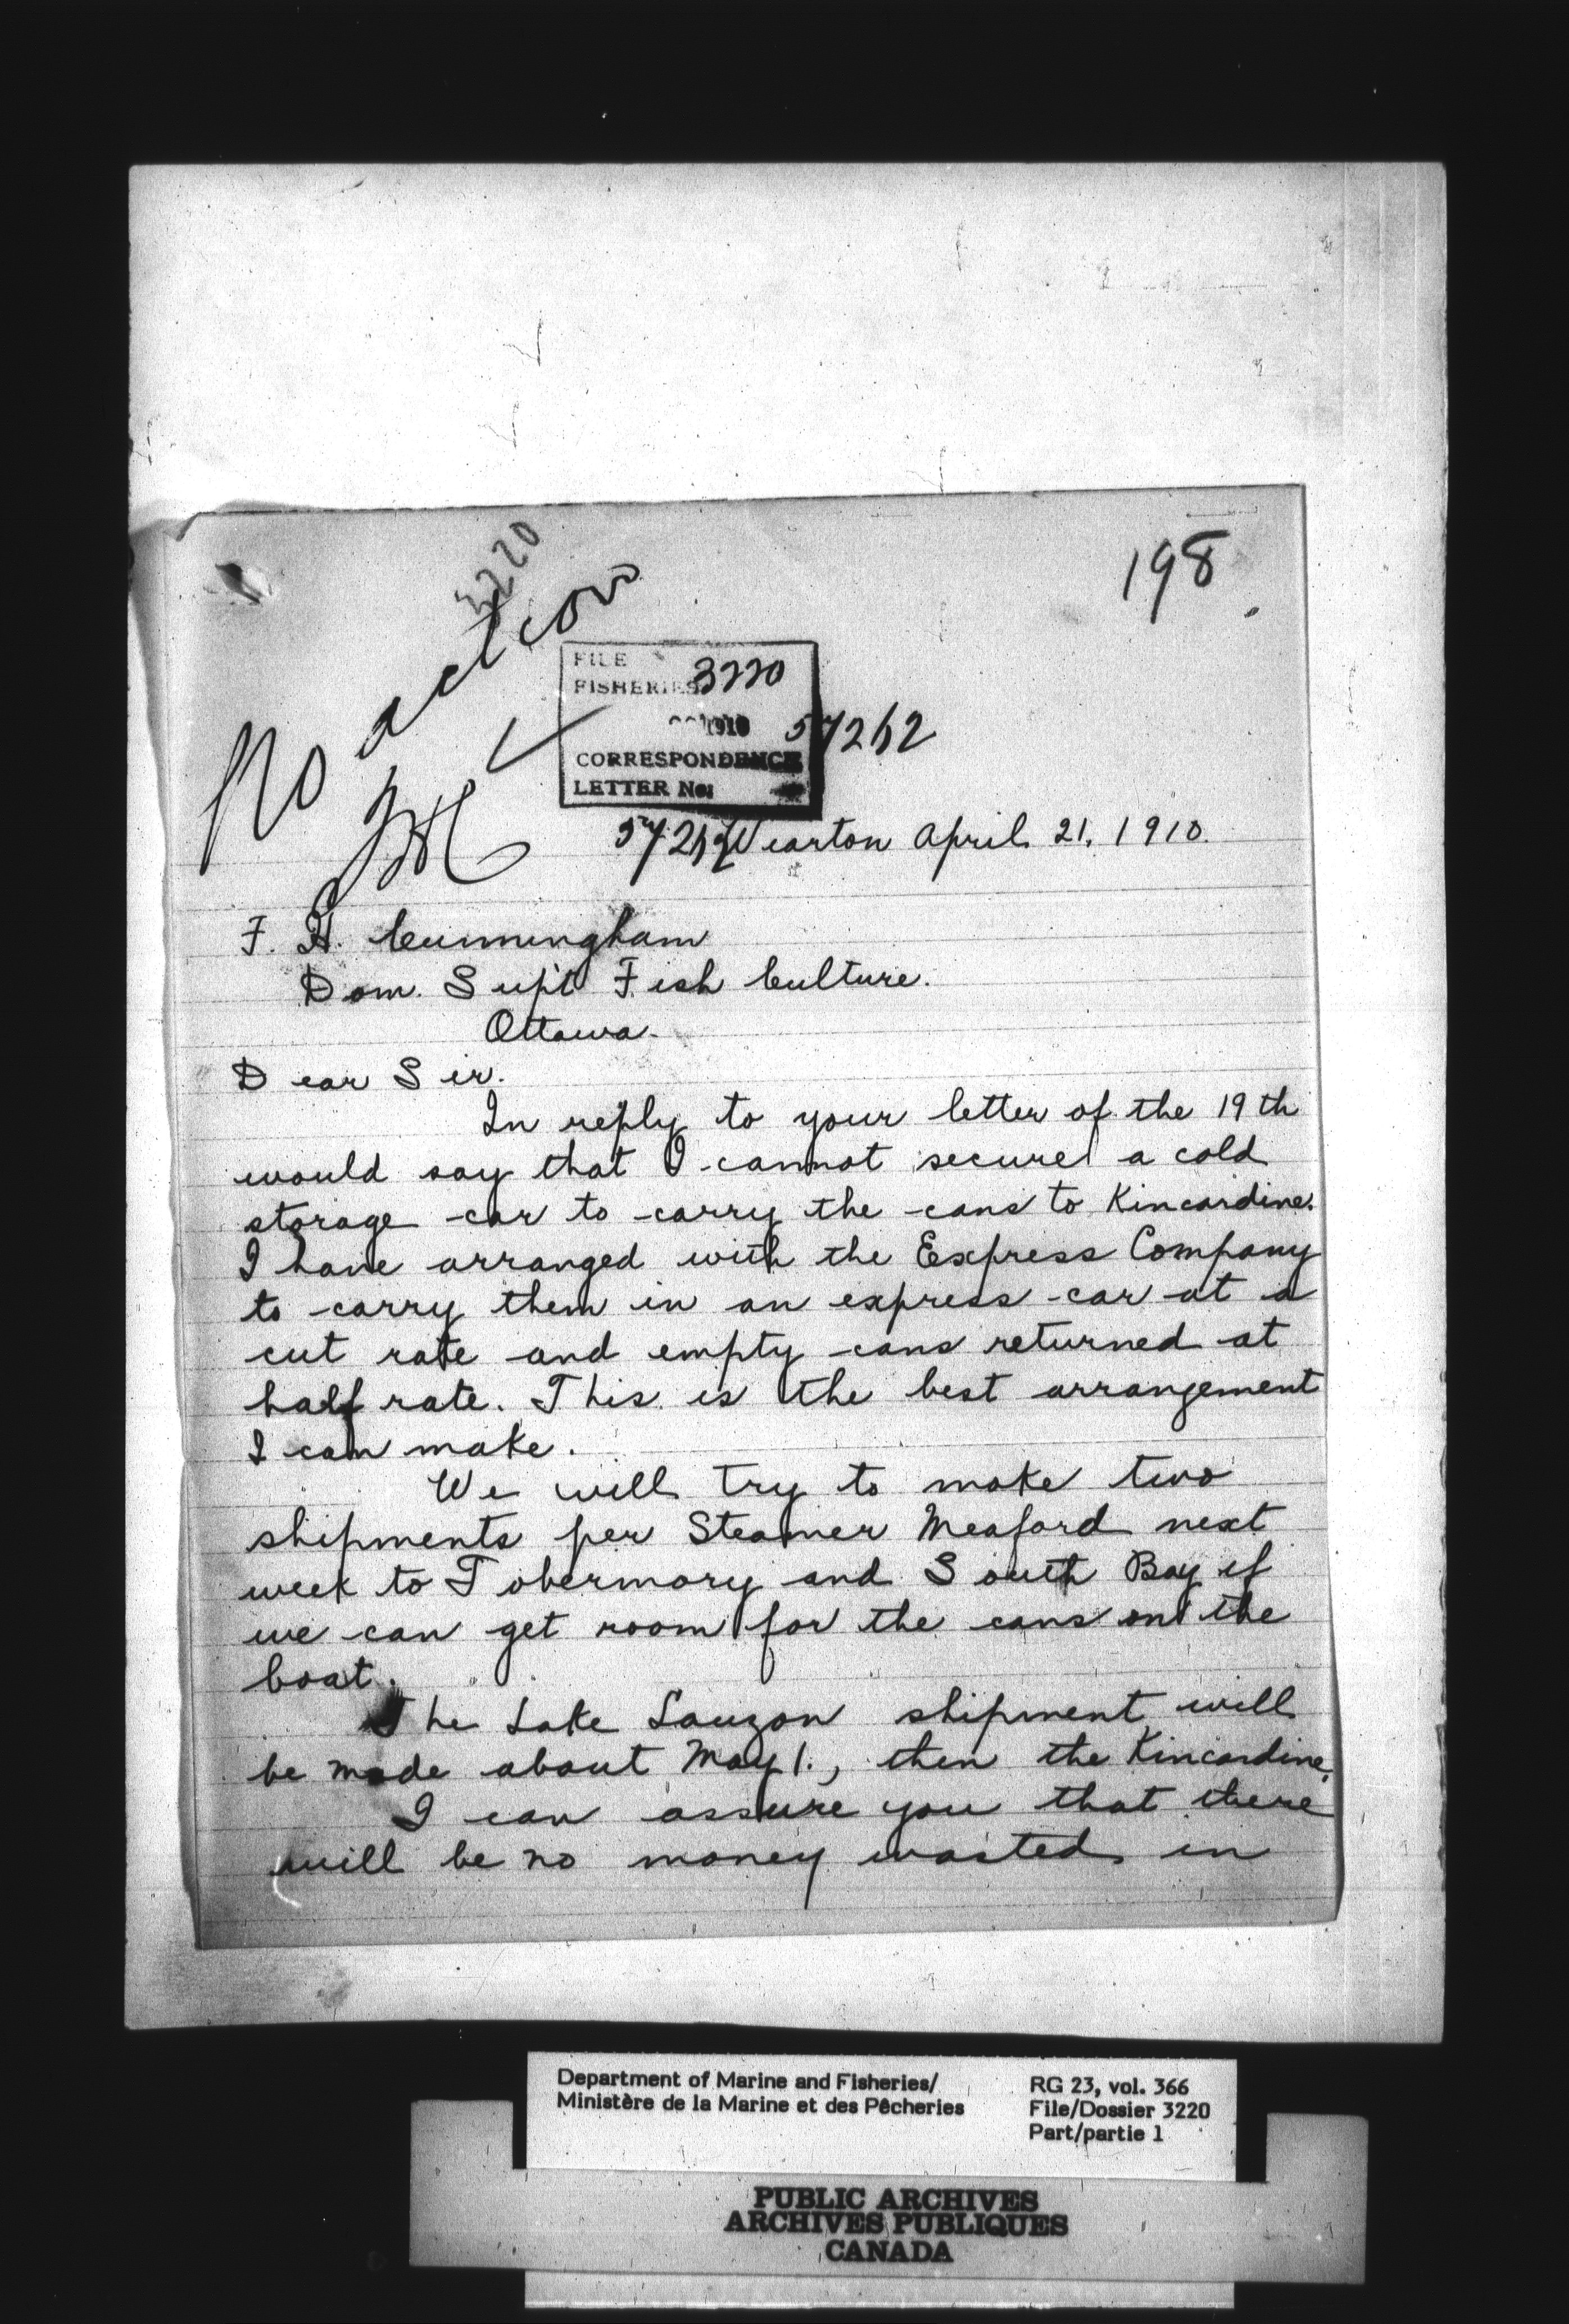 198
3220
No action
FILE
FISHERIES 3220
1910 57262
CORRESPONDENCE
LETTER No:
57262 Wiarton April 21, 1910.
F. H. Cunningham
Dom. Supt Fish Culture.
Ottawa.
Dear Sir.
In reply to your letter of the 19th
would say that I cannot secure a cold
storage car to carry the cans to Kincardine.
I have arranged with the Express Company
to carry them in an express car at a
cut rate and empty cans returned at
half rate. This is the best arrangement
I can make.
We will try to make two
shipments per Steamer Meaford next
week to Tobermory and South Bay if
we can get room for the cans on the
boat.
The Lake Lauzon shipment will
be made about May 1., then the Kincardine.
I can assure you that there
will be no money wasted in
Department of Marine and Fisheries/
Ministère de la Marine et des Pêcheries
RG 23, vol. 366
File/Dossier 3220
Part/partie 1
PUBLIC ARCHIVES
ARCHIVES PUBLIQUES
CANADA